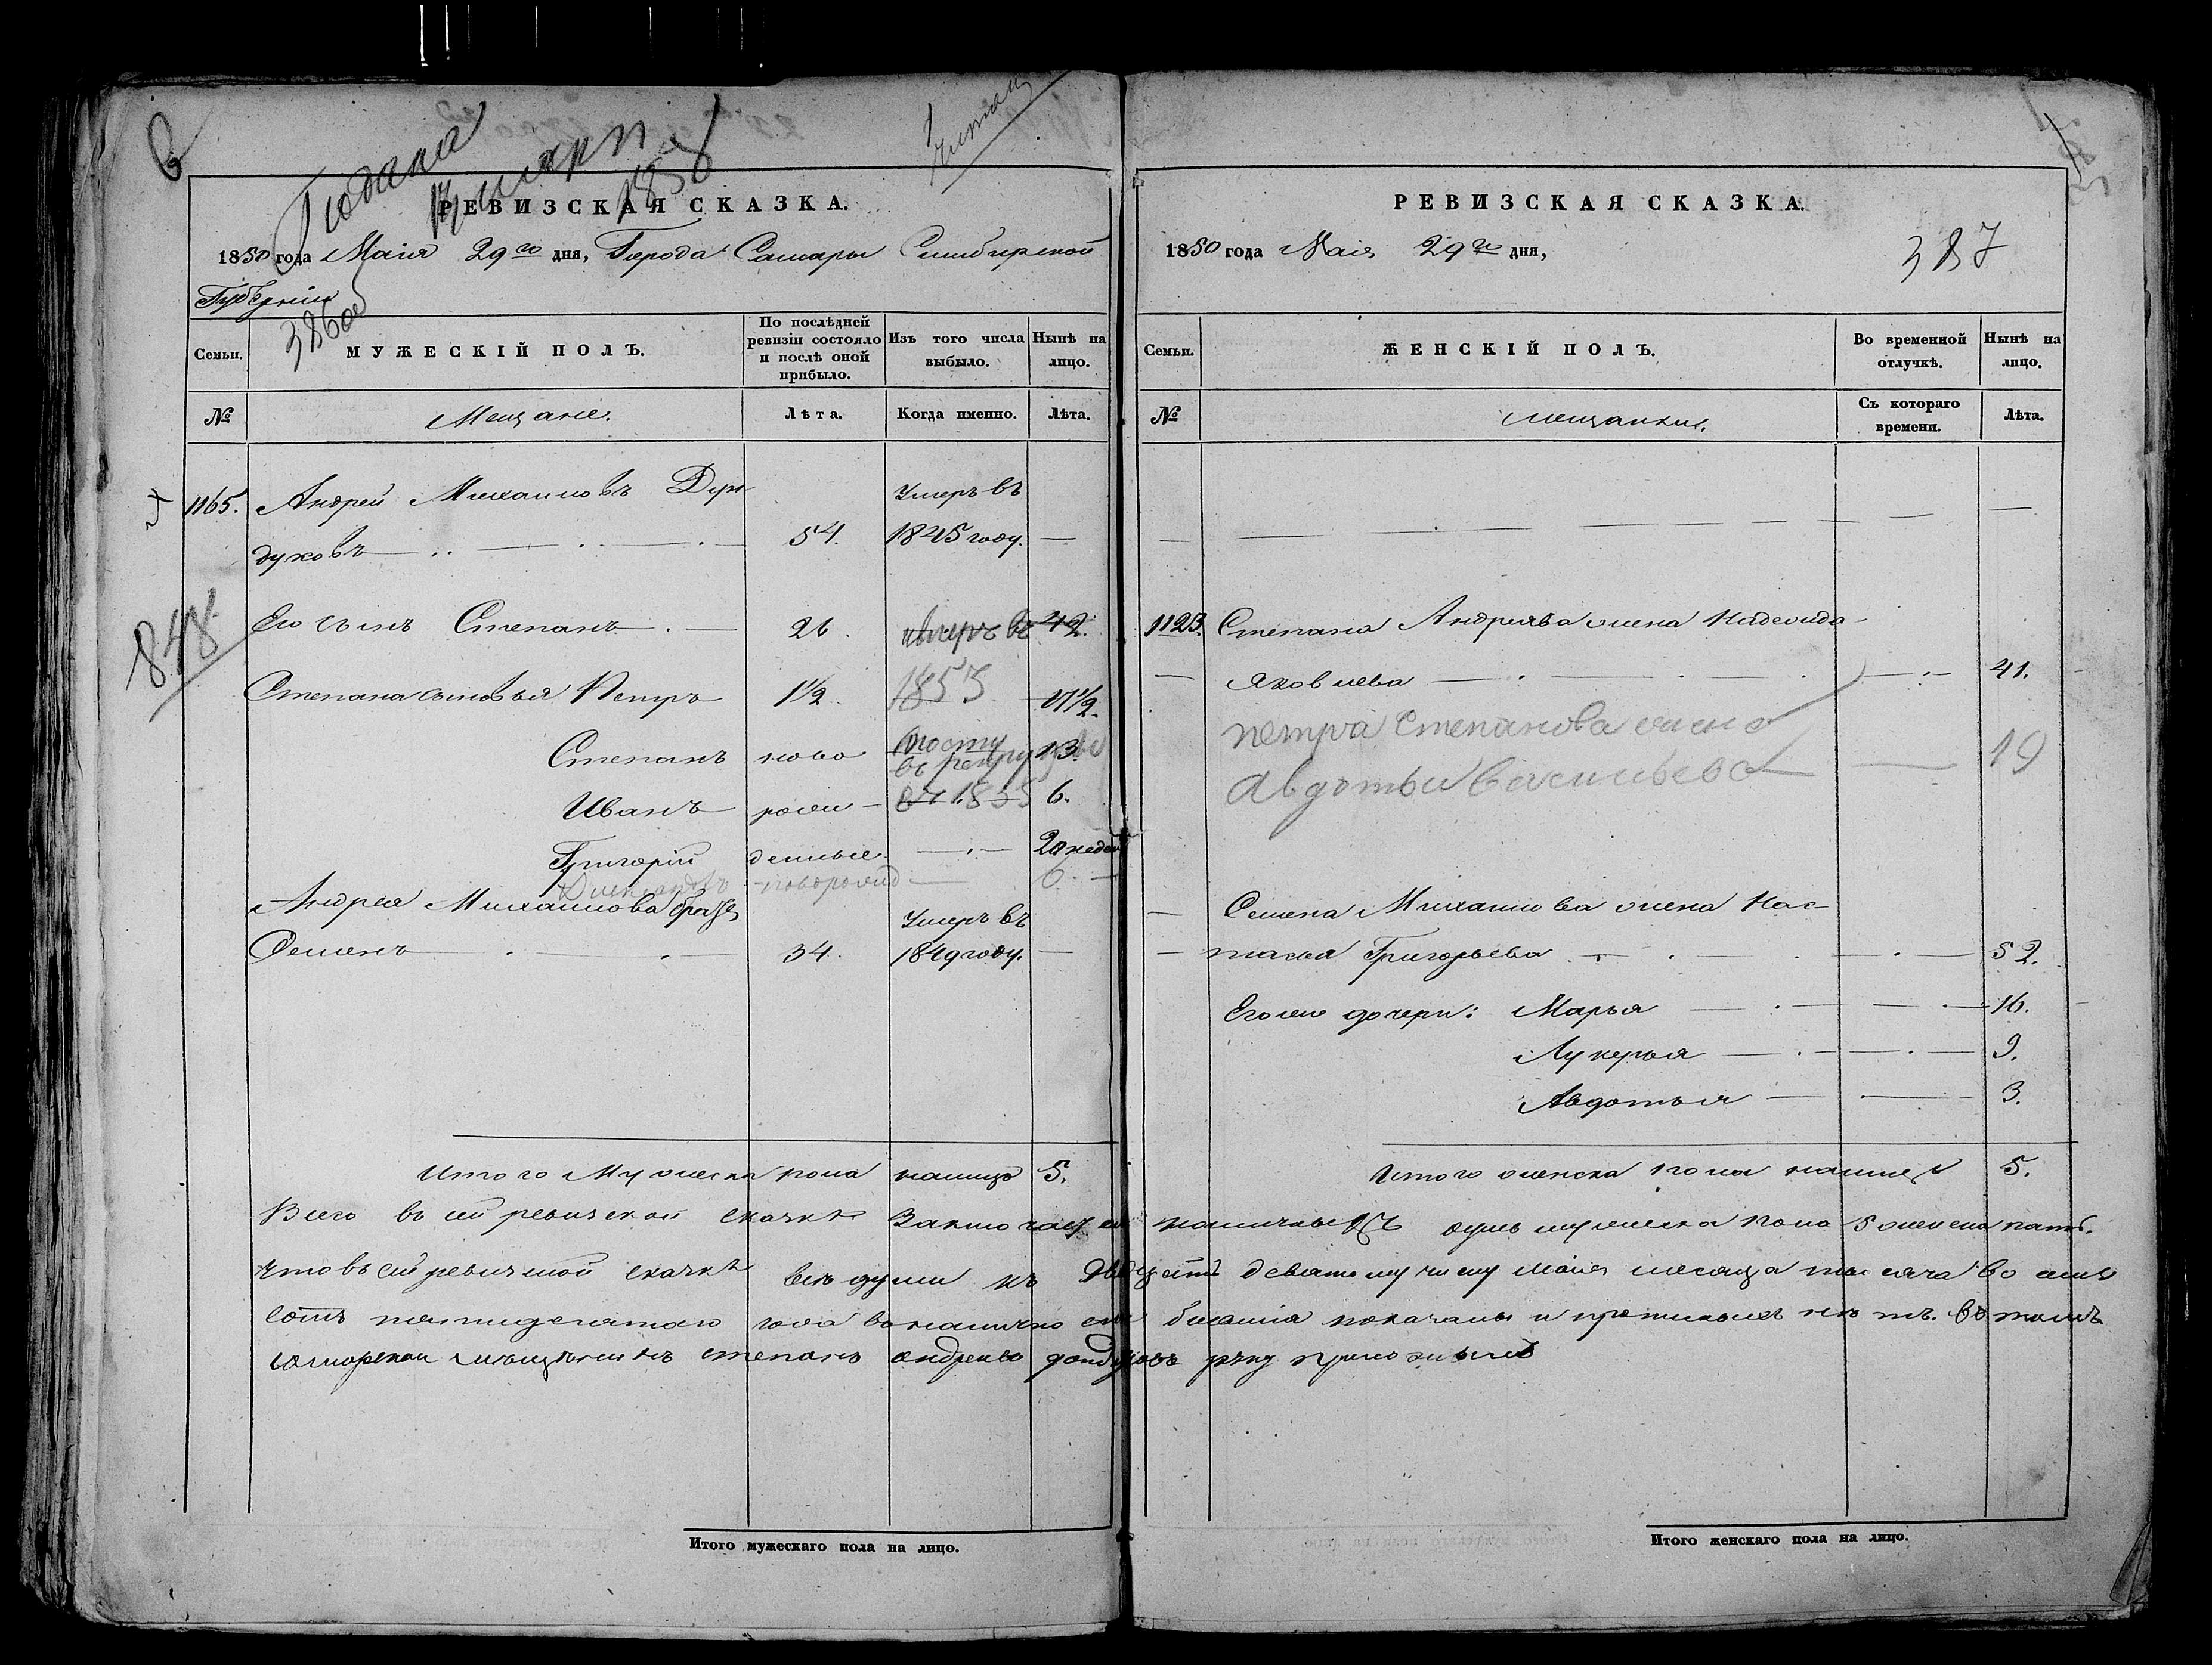 Подана
Читан
1858
РЕВИЗСКАЯ СКАЗКА.
1850 года Маія 29го дня, Города Самары Симбирской
Губерніи
386об
Семьи.
МУЖЕСКІЙ ПОЛЪ.
По послѣдней ревизіи состояло и послѣ оной прибыло.
Изъ того числа выбыло.
Нынѣ на лицо.
№
Мещане.
Лѣта.
Когда именно.
Лѣта.
1165. Андрей Михаиловъ Дун
дуковъ 54. Умеръ въ 1845 году. —
848
Его сынъ Степанъ 26. умеръ въ 42.
Степана сыновья Петръ 1½. 1853 17½.
Степанъ ново 13.
Иванъ рож въ 1855 6.
Григорій денные 20 недель
новорожд 6.
Андрея Михаилова братъ
Семенъ 34. Умеръ въ 1849 году. —
Итого мужеска пола налицо 5.
РЕВИЗСКАЯ СКАЗКА.
1850 года Маія 29го дня,
387
Семьи.
ЖЕНСКІЙ ПОЛЪ.
Во временной отлучкѣ.
Нынѣ на лицо.
№
мещанки.
Съ котораго времени.
Лѣта.
1123. Степана Андреева жена Надежда
Яковлева 41.
Петра Степанова жена
Авдотья Васильева 19
Семена Михаилова жена Нас-
тасья Григорьева 52.
Его же дочери: Марья 16.
Лукерья 9.
Авдотья 3.
Итого женска пола налицо 5.
Всего въ сей ревизской сказкѣ наличныхъ душъ мужеска пола 5 женска пять.
что въ сей ревизской сказкѣ все души къ двадцать девятому числу маія месяца тысяча во семь
сотъ пятидесятаго года показаны и прописныхъ нѣтъ. въ томъ
самарской мещанинъ степанъ андреевъ дондуковъ руку приложилъ
Итого мужескаго пола на лицо.
Итого женскаго пола на лицо.